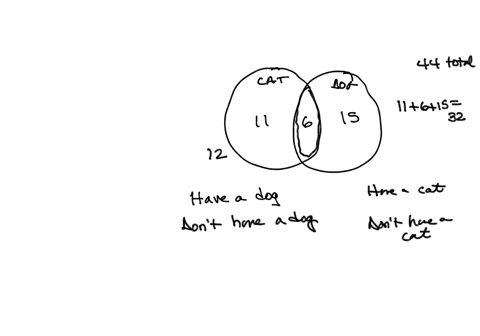 44 total
CAT
DOG
11
6
15
11+6+15=
32
12
Have a dog
Don't have a dog
Have a cat
Don't have a
cat